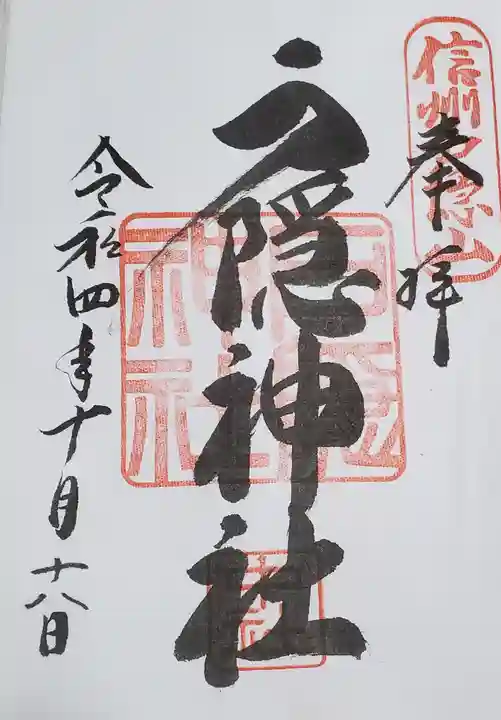 信州戸隠山
奉拝
戸隠神社
令和四年十月十八日